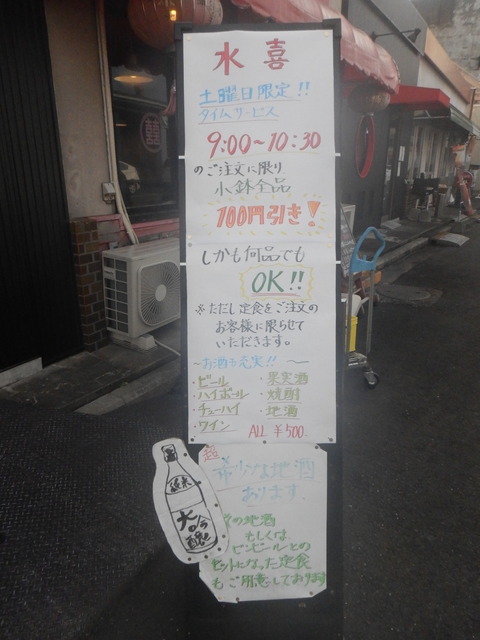 水喜
土曜日限定!!
タイムサービス
9:00~10:30
のご注文に限り
小鉢全品
100円引き!
しかも何品でも
OK!!
※ただし定食をご注文の
お客様に限らせて
いただきます。
~お酒も充実!!~
・ビール
・ハイボール
・チューハイ
・ワイン
・果実酒
・焼酎
・地酒
ALL ¥500-
超
希少な地酒
あります
純米
大吟醸
の地酒
もしくは
ビンビールとの
セットになった定食
もご用意しております
囍